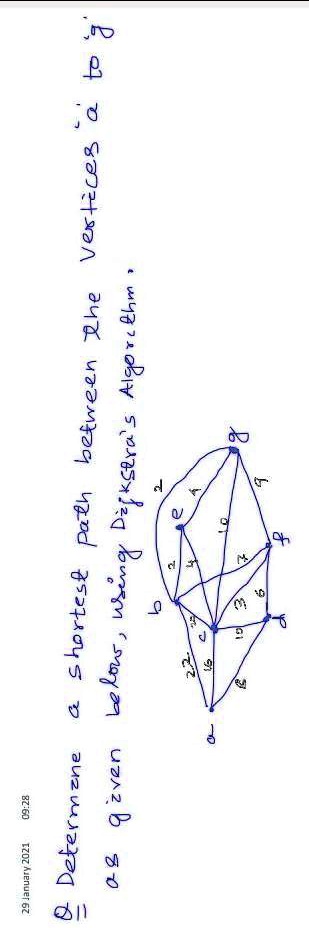 29 January 2021 09:28
Q Determine a shortest path between the vertices 'a' to 'g'
as given below, using Dijkstra's Algorithm.
2
b 2 e 4 g
22 20 4 10
a 16 c 7 9
8 10 3
d 6 f